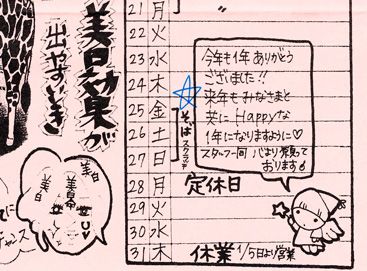 美白効果が
出やすいとき
21 月
22 火
23 水
24 木
25 金
26 土
27 日
28 月 定休日
29 火
30 水
31 木 休業 1/5日より営業
そばスクラブ
今年も1年ありがとう
ございました!!
来年もみなさまと
共に Happyな
1年になりますように♡
スタッフ一同 心より願って
おります
美白
美白
UV
チャンス